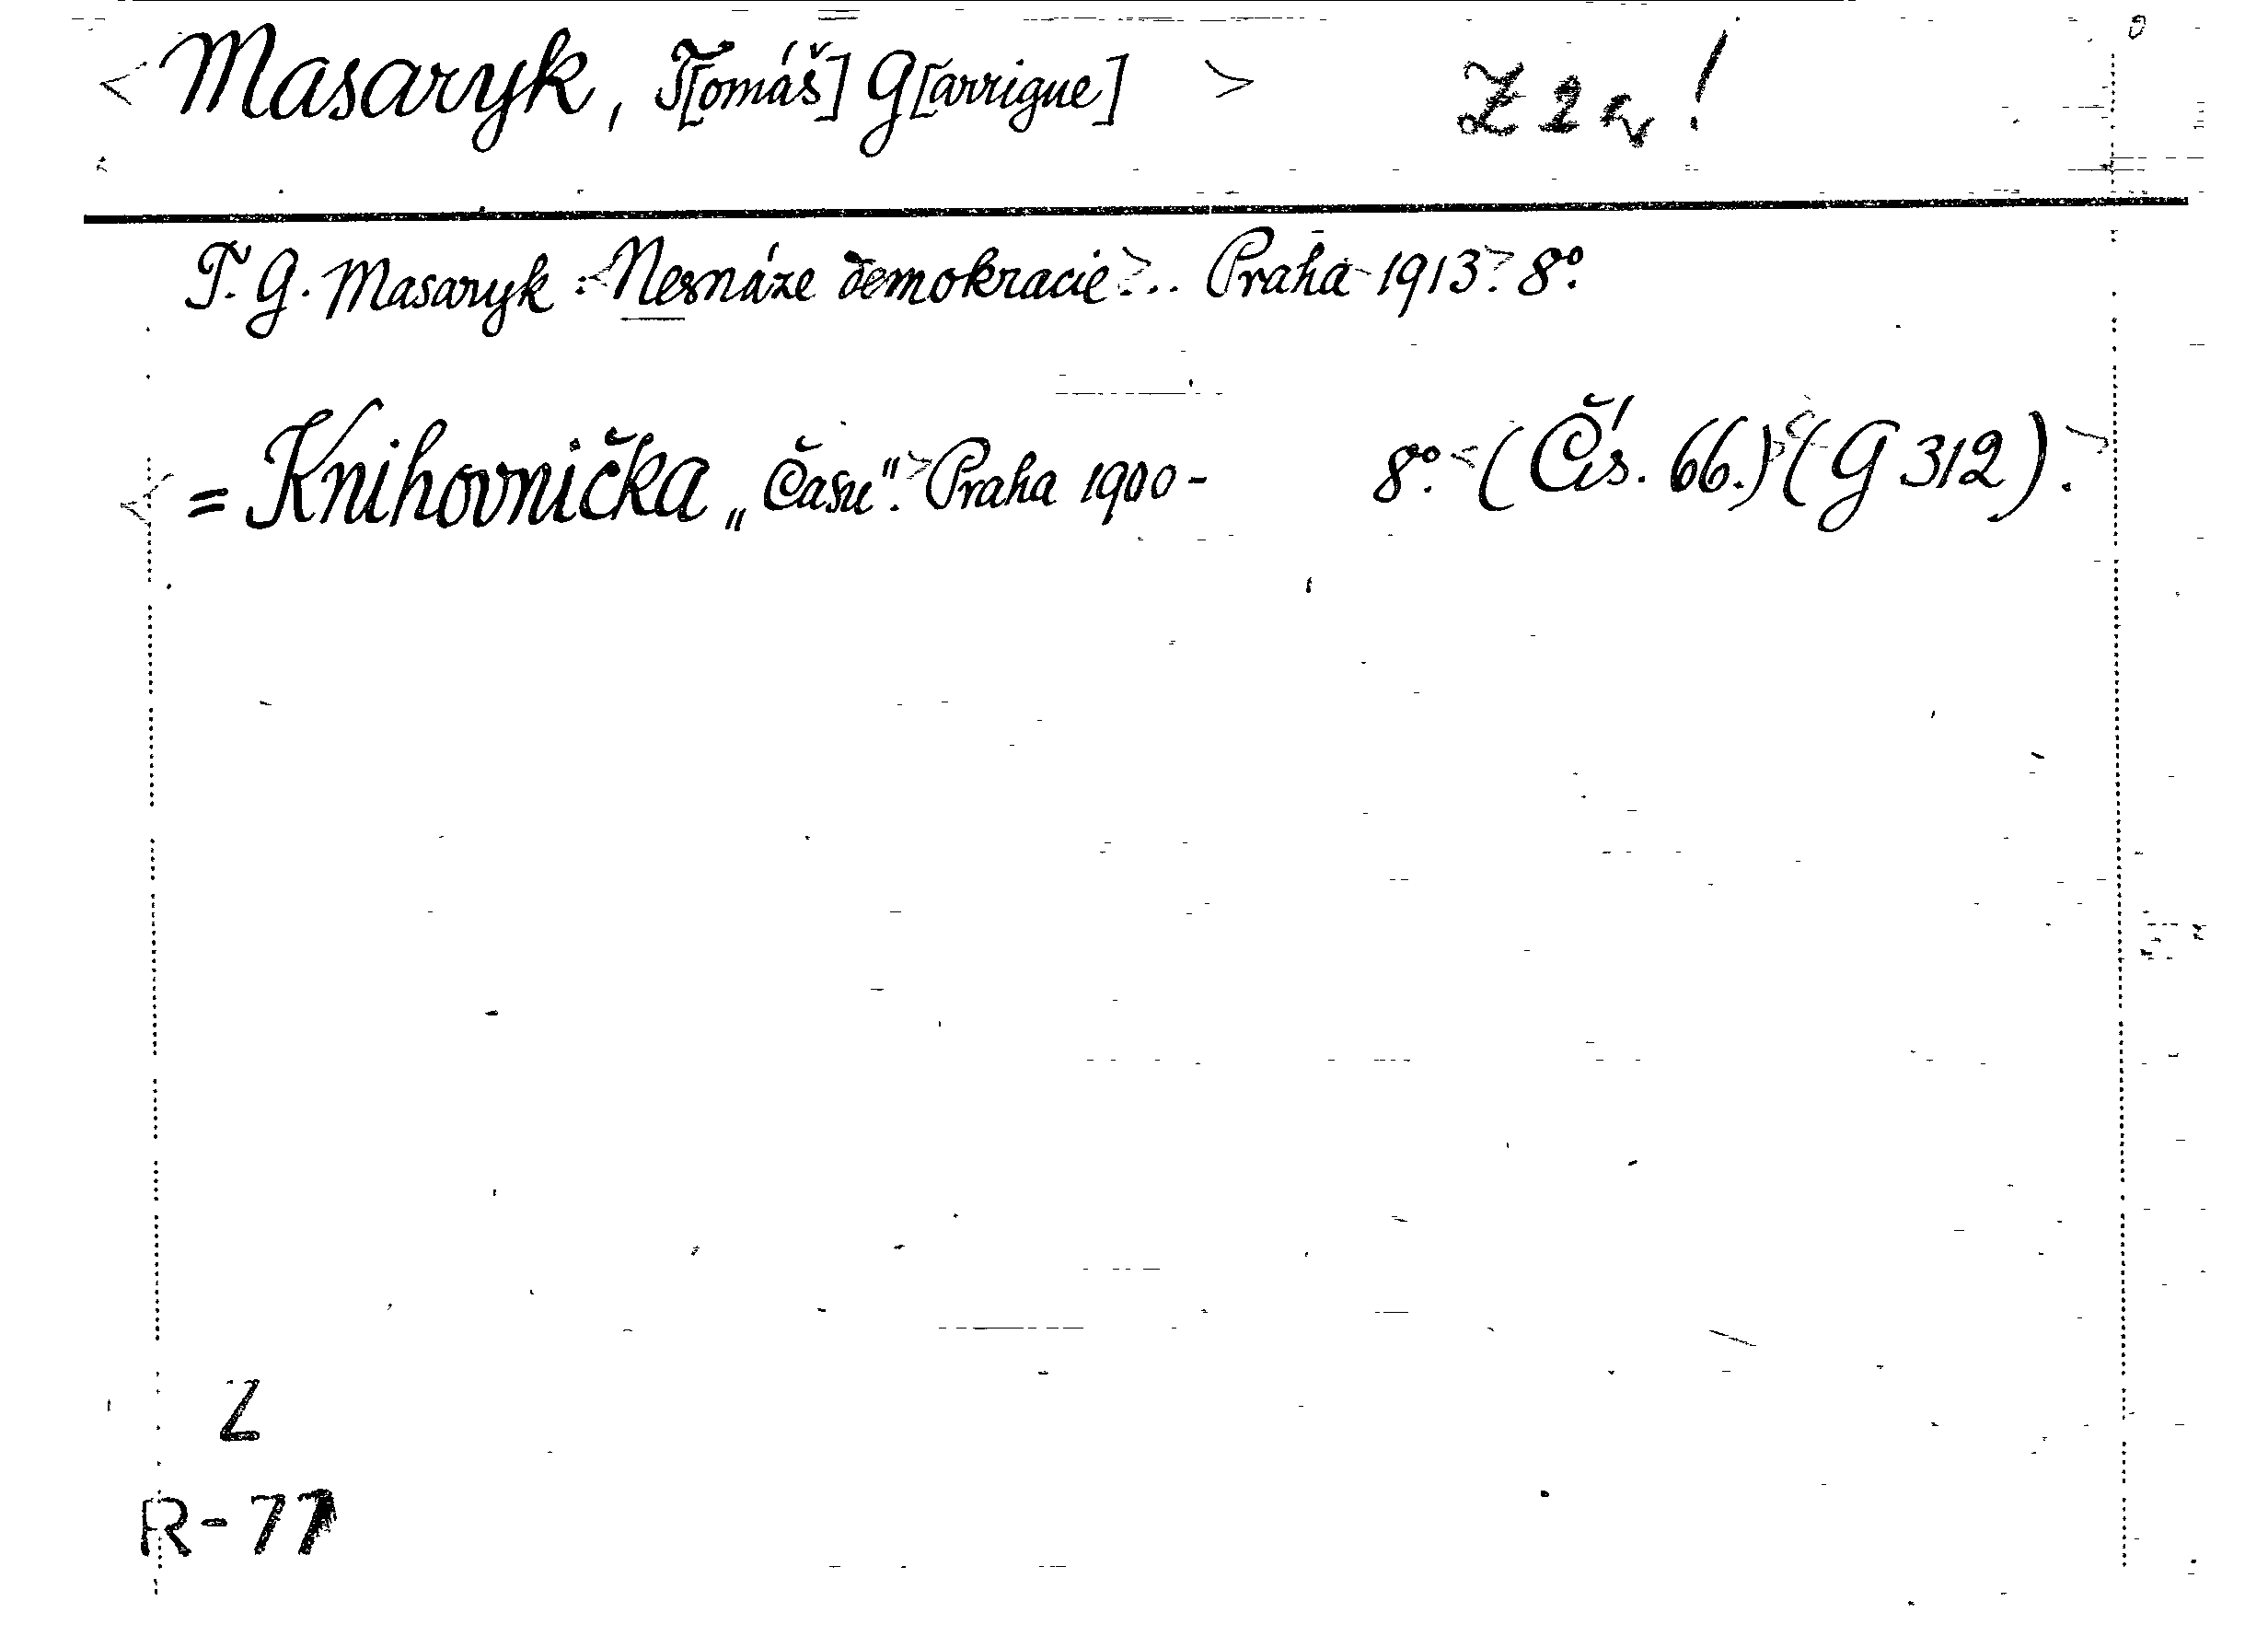 < Masaryk, T[omáš] G[arrigue] >
T. G. Masaryk: <Nesnáze demokracie>.. Praha 1913. 8°.
< = Knihovnička „Času“.> Praha 1900- 8°. <(Čís. 66.)> <(G 312).>
Z
R-77